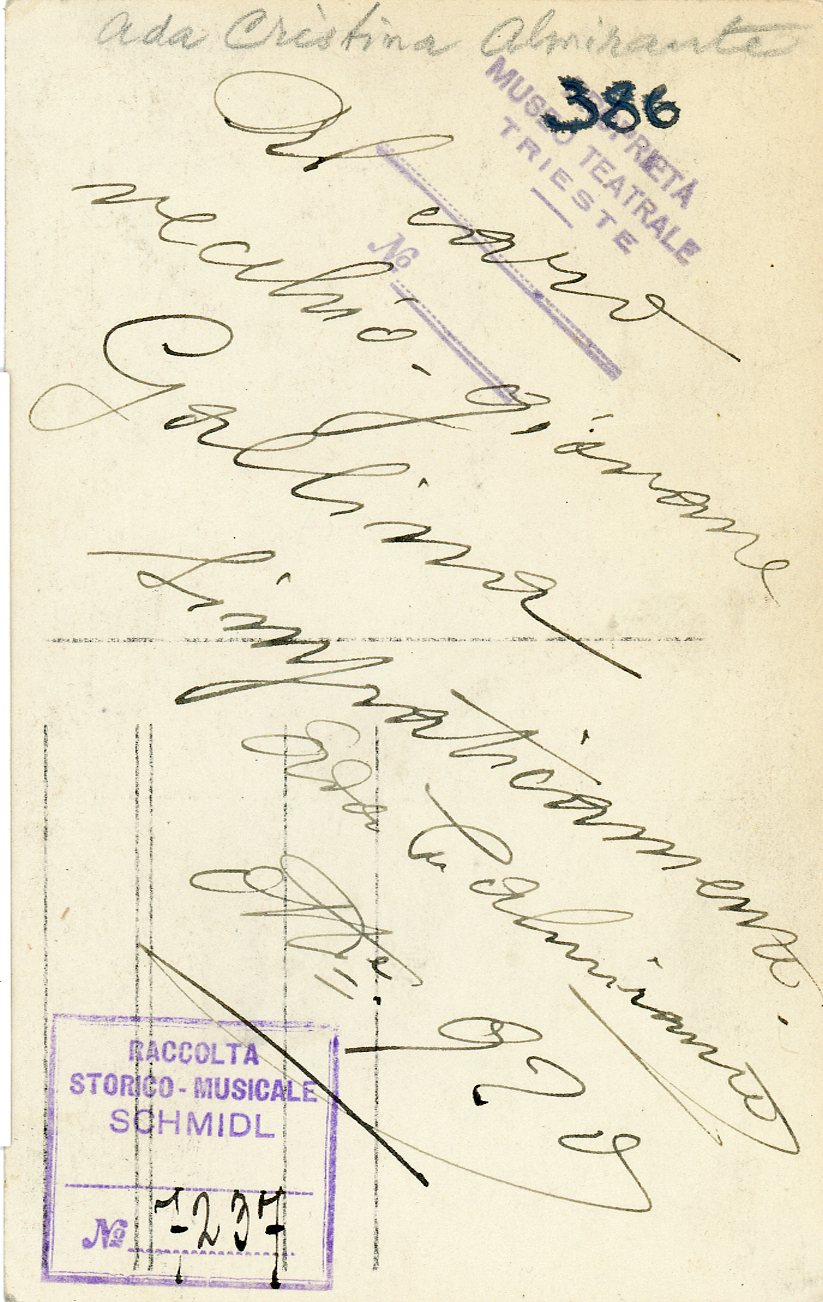 Ada Cristina Almirante
386
PROPRIETÀ
MUSEO TEATRALE
TRIESTE
No
Al caro
vecchio-giovane
Gallina
Simpaticamente.
Ada C. Almirante
920
RACCOLTA
STORICO-MUSICALE
SCHMIDL
No 7237